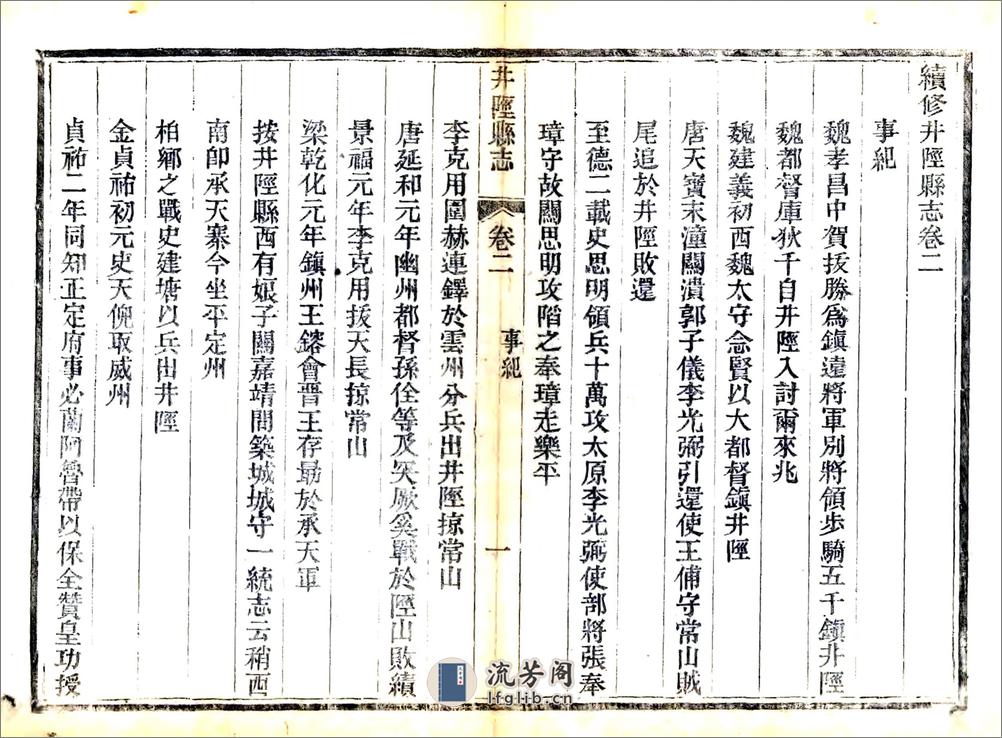 續修井陘縣志卷二
事紀
魏孝昌中賀拔勝爲鎮遠將軍別將領步騎五千鎮井陘
魏都督庫狄千自井陘入討爾朱兆
魏建義初西魏太守念賢以大都督鎮井陘
唐天寶末潼關潰郭子儀李光弼引還使王俌守常山賊
尾追於井陘敗還
至德二載史思明領兵十萬攻太原李光弼使部將張奉
璋守故關思明攻陷之奉璋走樂平
井陘縣志
卷二
事紀
一
李克用圍赫連鐸於雲州分兵出井陘掠常山
唐延和元年幽州都督孫佺等及突厥奚戰於陘山敗績
景福元年李克用拔天長掠常山
梁乾化元年鎮州王鎔會晉王存勗於承天軍
按井陘縣西有娘子關嘉靖間築城城守一統志云稍西
南卽承天寨今坐平定州
柏鄉之戰史建塘以兵出井陘
金貞祐初元史天倪取威州
貞祐二年同知正定府事必蘭阿魯帶以保全贊皇功授
流芳阁
lfglib.cn